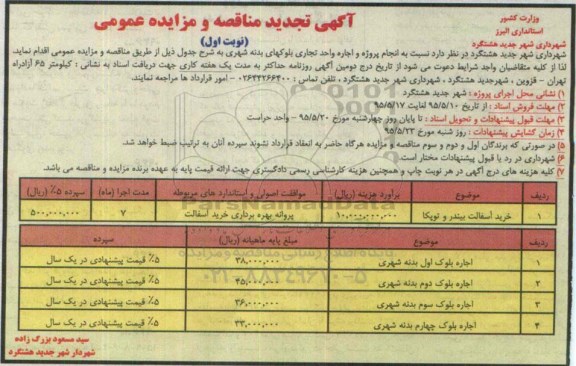 وزارت کشور
استانداری البرز
شهرداری شهر جدید هشتگرد
آگهی تجدید مناقصه و مزایده عمومی
(نوبت اول)
شهرداری شهر جدید هشتگرد در نظر دارد نسبت به انجام پروژه و اجاره واحد تجاری بلوکهای بدنه شهری به شرح جدول ذیل از طریق مناقصه و مزایده عمومی اقدام نماید.
لذا از کلیه متقاضیان واجد شرایط دعوت می شود از تاریخ درج دومین آگهی روزنامه حداکثر به مدت یک هفته کاری جهت دریافت اسناد به نشانی : کیلومتر ۶۵ آزادراه
تهران - قزوین ، شهرجدید هشتگرد ، شهرداری شهر جدید هشتگرد ، تلفن تماس : ۰۲۶۴۴۲۶۶۴۰۰ - امور قرارداد ها مراجعه نمایند.
۱) نشانی محل اجرای پروژه : شهر جدید هشتگرد
۲) مهلت فروش اسناد : از تاریخ ۹۵/۵/۱۰ لغایت ۹۵/۵/۱۷
۳) مهلت قبول پیشنهادات و تحویل اسناد : تا پایان روز چهارشنبه مورخ ۹۵/۵/۲۰ - واحد حراست
۴) زمان گشایش پیشنهادات : روز شنبه مورخ ۹۵/۵/۲۳
۵) در صورتی که برندگان اول و دوم و سوم مناقصه و مزایده هرگاه حاضر به انعقاد قرارداد نشوند سپرده آنان به ترتیب ضبط خواهد شد.
۶) شهرداری در رد یا قبول پیشنهادات مختار است.
۷) کلیه هزینه های درج آگهی در هر نوبت چاپ و همچنین هزینه کارشناسی رسمی دادگستری جهت ارائه قیمت پایه به عهده برنده مزایده و مناقصه می باشد.
ردیف موضوع برآورد هزینه (ریال) موافقت اصولی و استاندارد های مربوطه مدت اجرا (ماه) سپرده ۵٪ (ریال)
۱ خرید آسفالت بیندر و توپکا ۱۰,۰۰۰,۰۰۰,۰۰۰ پروانه بهره برداری خرید آسفالت ۷ ۵۰۰,۰۰۰,۰۰۰
ردیف موضوع مبلغ پایه ماهیانه (ریال) سپرده
۱ اجاره بلوک اول بدنه شهری ۳۸,۰۰۰,۰۰۰ ۵٪ قیمت پیشنهادی در یک سال
۲ اجاره بلوک دوم بدنه شهری ۴۵,۰۰۰,۰۰۰ ۵٪ قیمت پیشنهادی در یک سال
۳ اجاره بلوک سوم بدنه شهری ۳۶,۰۰۰,۰۰۰ ۵٪ قیمت پیشنهادی در یک سال
۴ اجاره بلوک چهارم بدنه شهری ۳۳,۰۰۰,۰۰۰ ۵٪ قیمت پیشنهادی در یک سال
سید مسعود بزرگ زاده
شهردار شهر جدید هشتگرد
ParsNamadData
۰۲۱-۸۸۳۴۹۶۷۰-۵